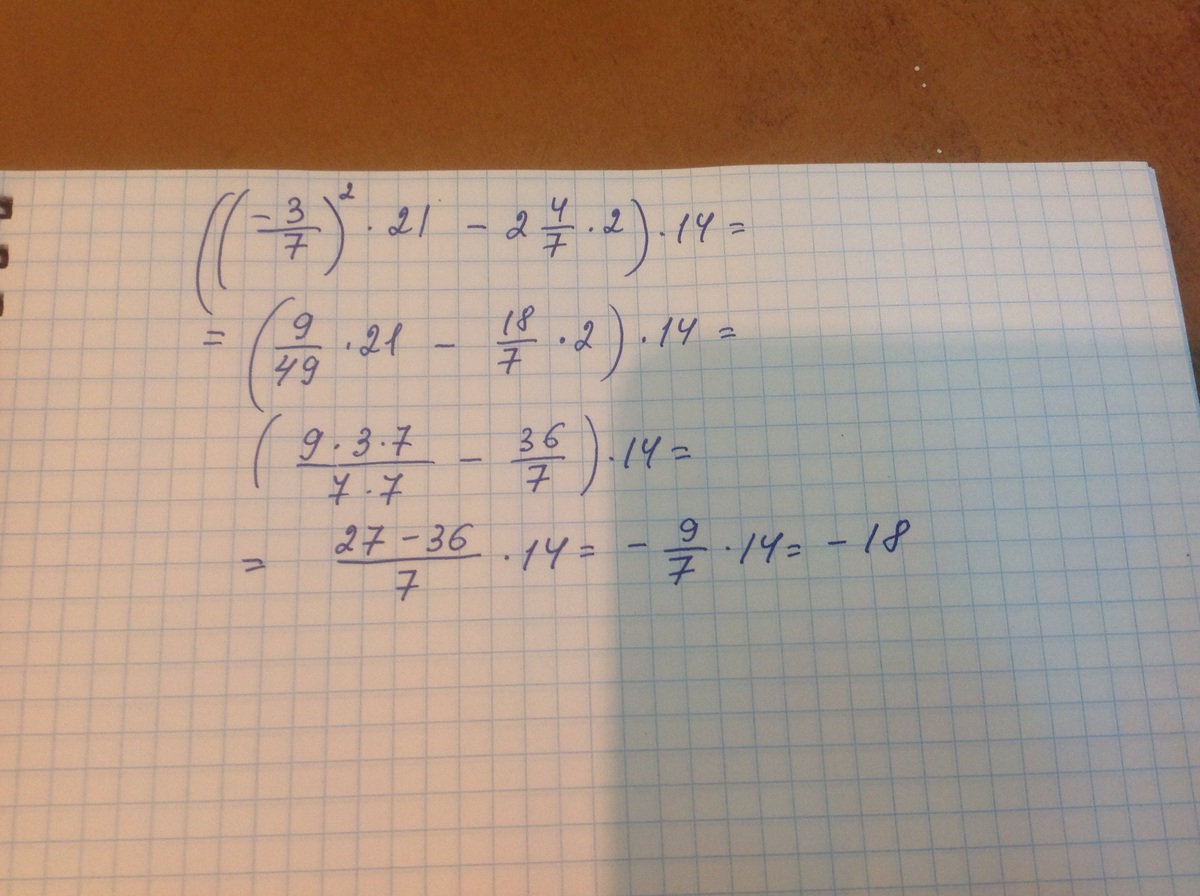 ((-3/7)² · 21 - 2 4/7 · 2) · 14 =
= (9/49 · 21 - 18/7 · 2) · 14 =
(9 · 3 · 7 / 7 · 7 - 36/7) · 14 =
= 27 - 36 / 7 · 14 = - 9/7 · 14 = - 18